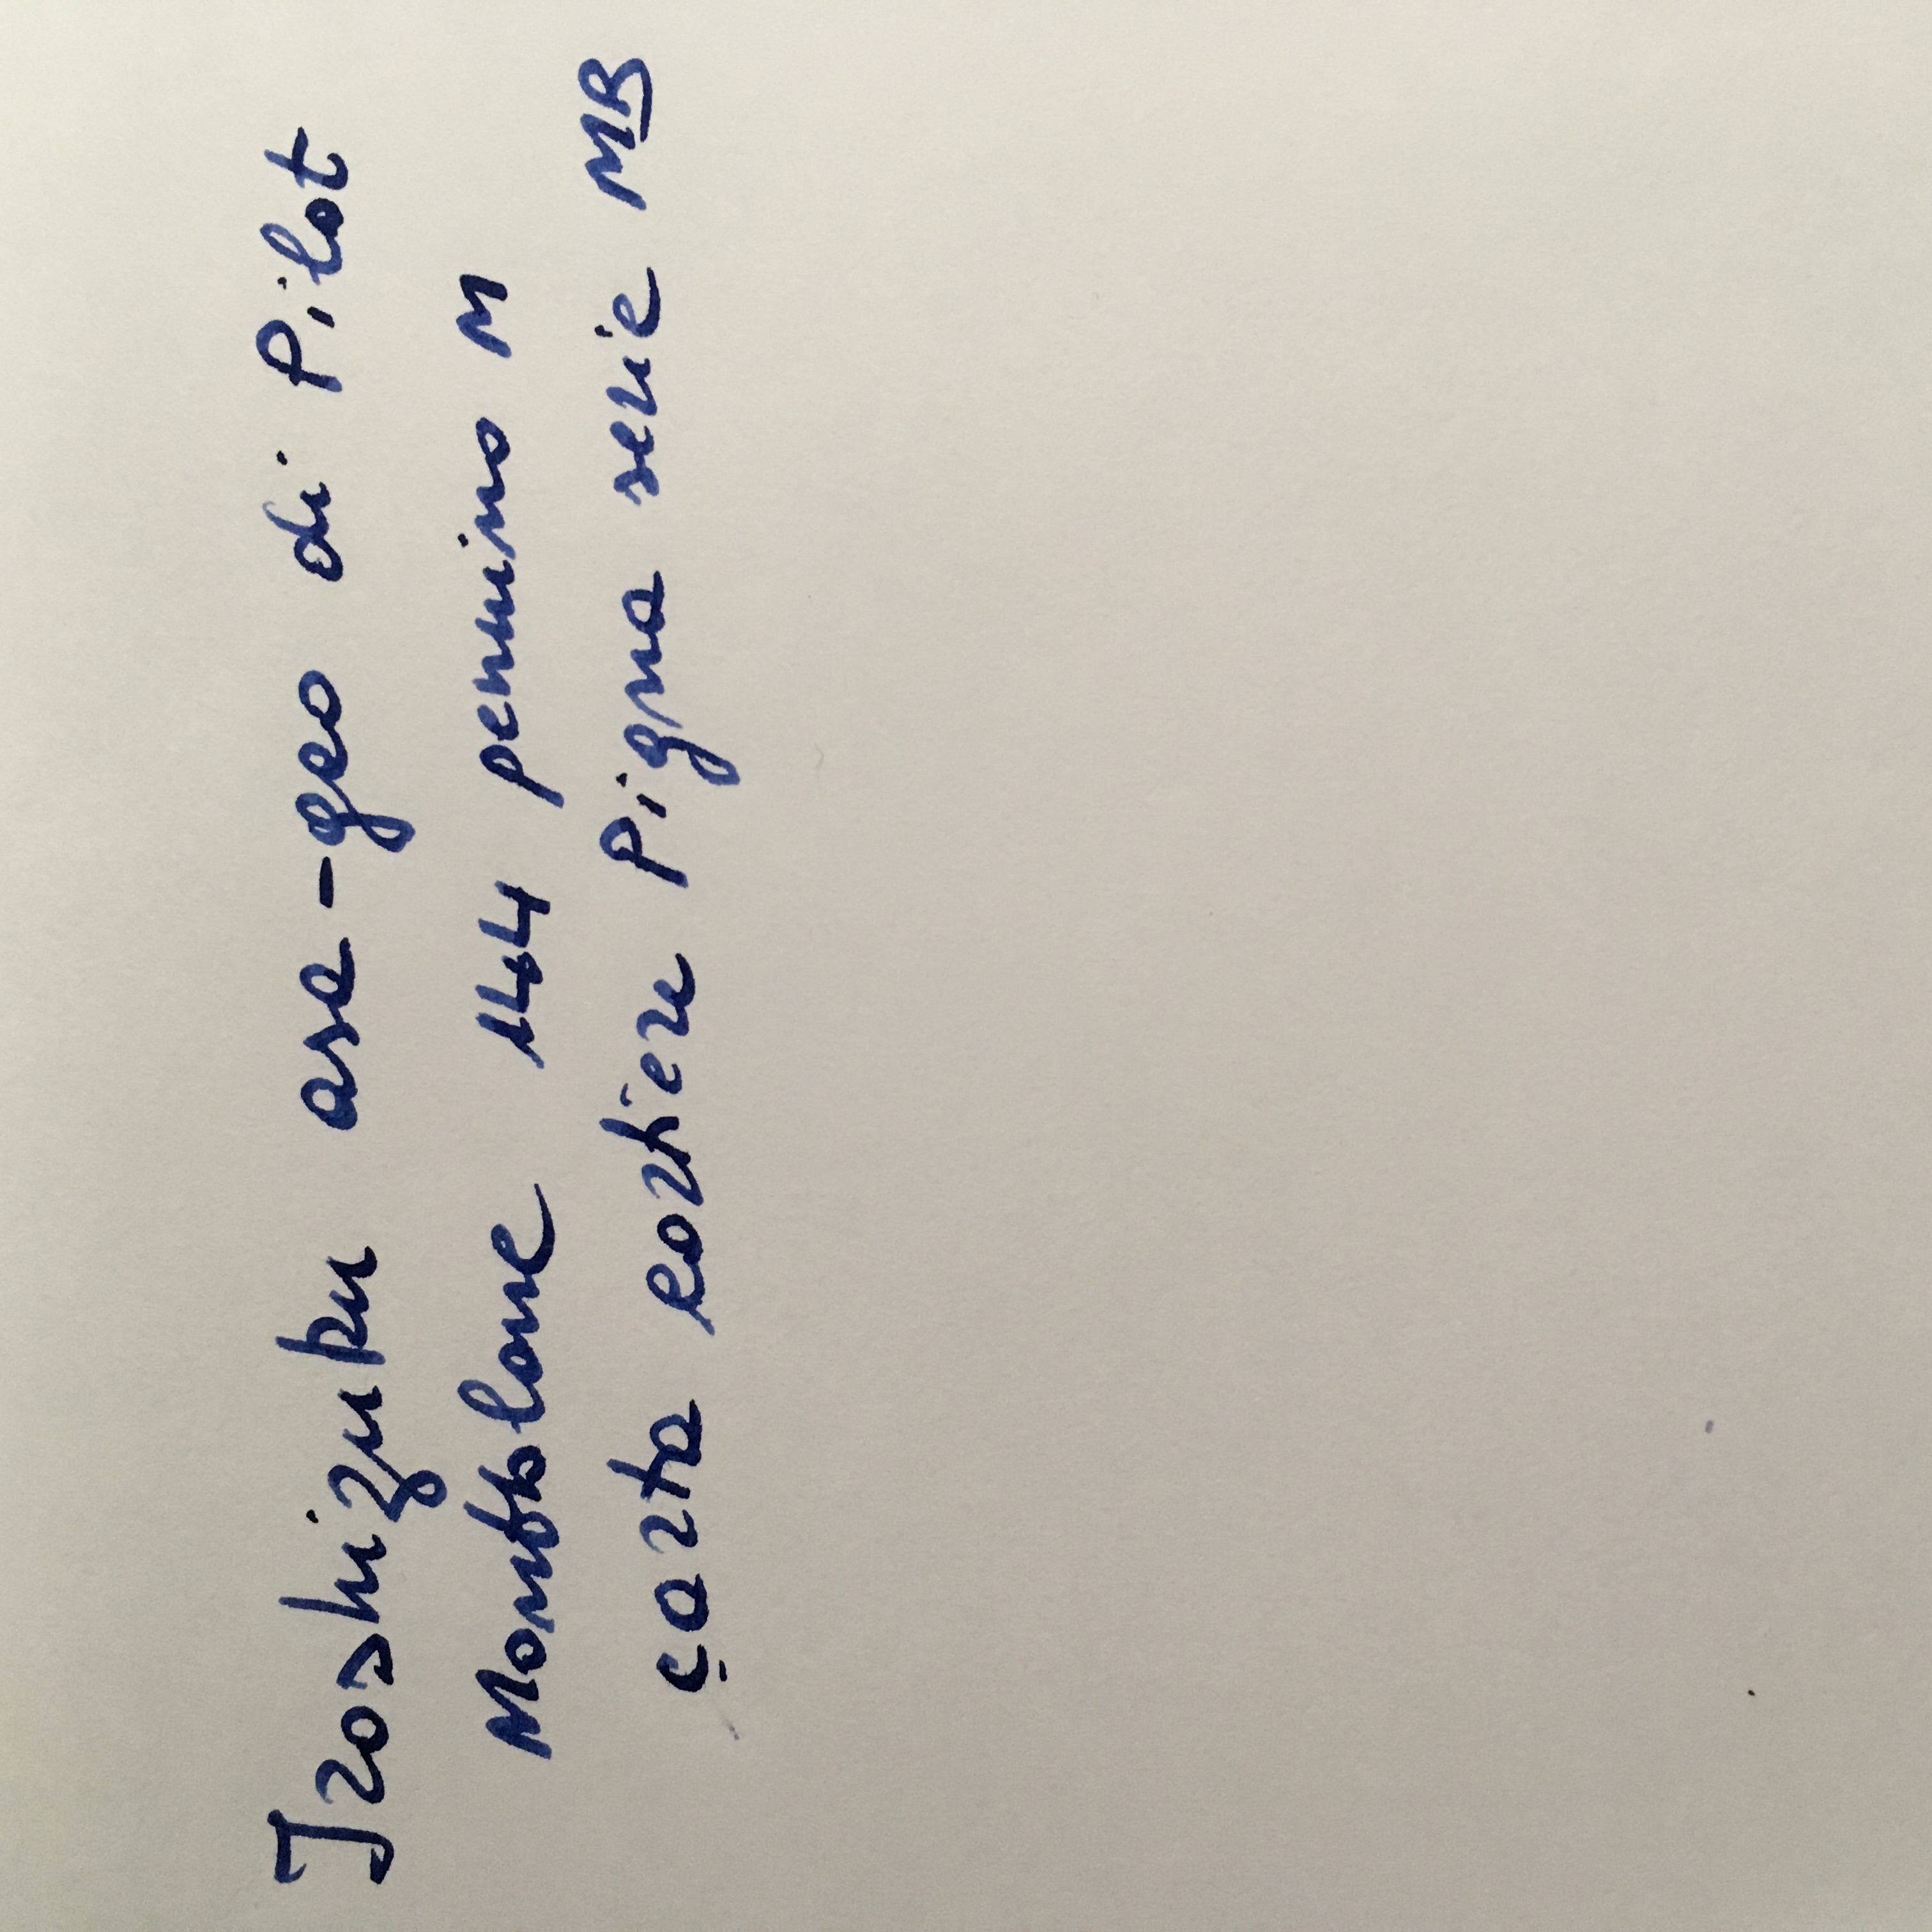 Iroshizuku asa-gao di Pilot
Montblanc 144 pennino M
carta Rotiera Pigna serie MB